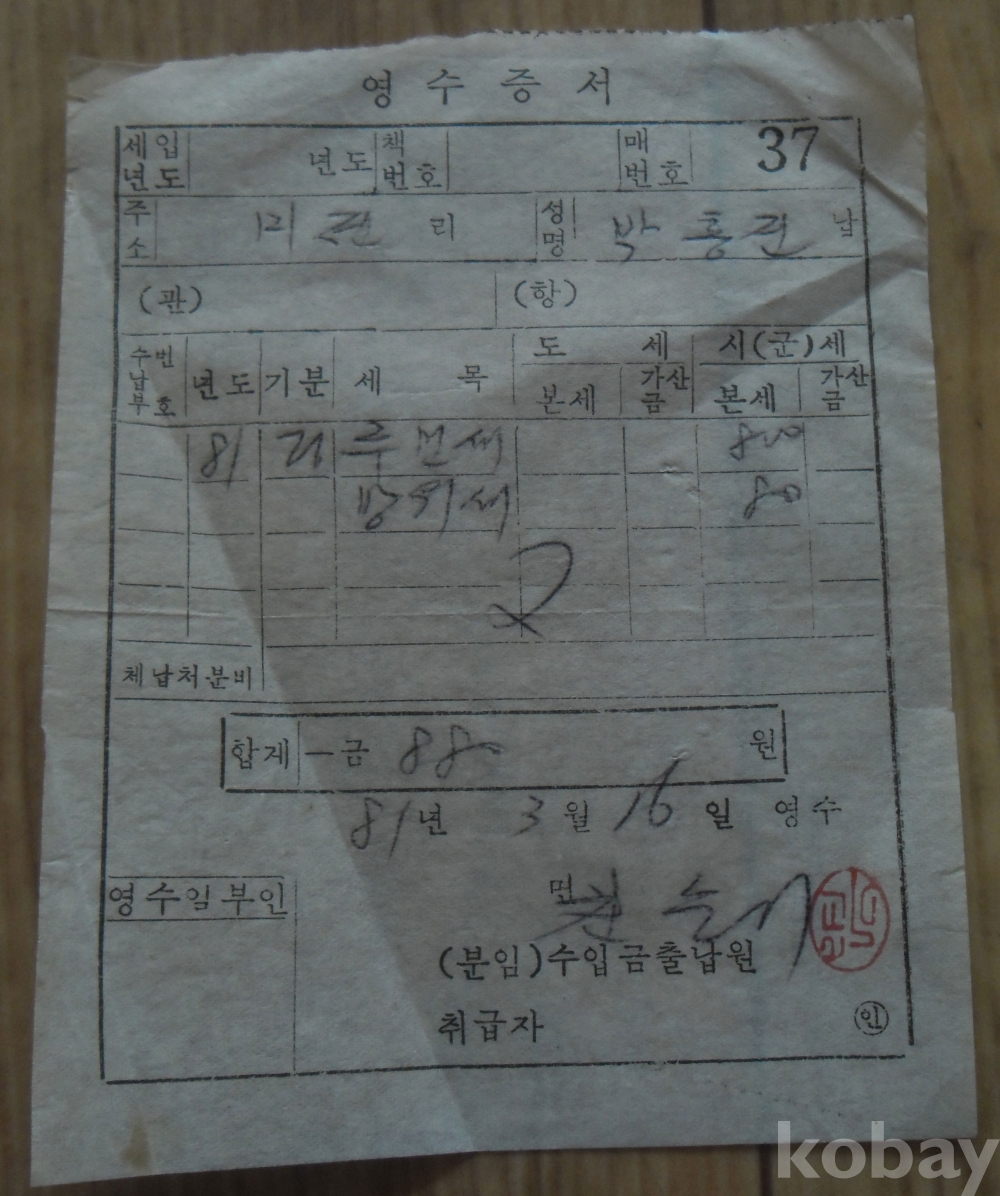 영수증서
세입년도 년도 책번호 매번호 37
주소 미련 리 성명 박홍련 납
(관) (항)
수납부번호 년도 기분 세목 도세 시(군)세
본세 가산금 본세 가산금
81 주민세 800
방위세 80
체납처분비
합계 一금 880 원
81년 3월 16일 영수
영수일부인 면
(분임)수입금출납원
취급자 인
kobay